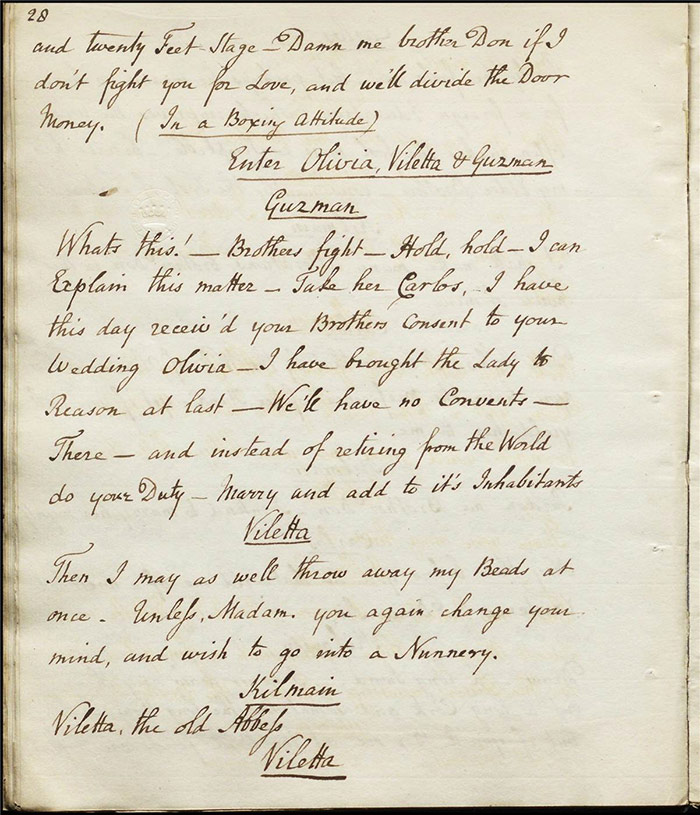 28
and twenty Feet Stage – Damn me brother Don if I
don't fight you for Love, and we'll divide the Door
Money. (In a Boxing Attitude)
Enter Olivia, Viletta & Guzman
Guzman
Whats this! — Brothers fight — Hold, hold — I can
Explain this matter – Take her Carlos, – I have
this day receiv'd your Brothers Consent to your
Wedding Olivia — I have brought the Lady to
Reason at last — We'll have no Convents —
There — and instead of retiring from the World
do your Duty – Marry and add to it's Inhabitants
Viletta
Then I may as well throw away my Beads at
once – Unleſs, Madam. you again change your
mind, and wish to go into a Nunnery.
Kilmain
Viletta, the old Abbeſs
Viletta